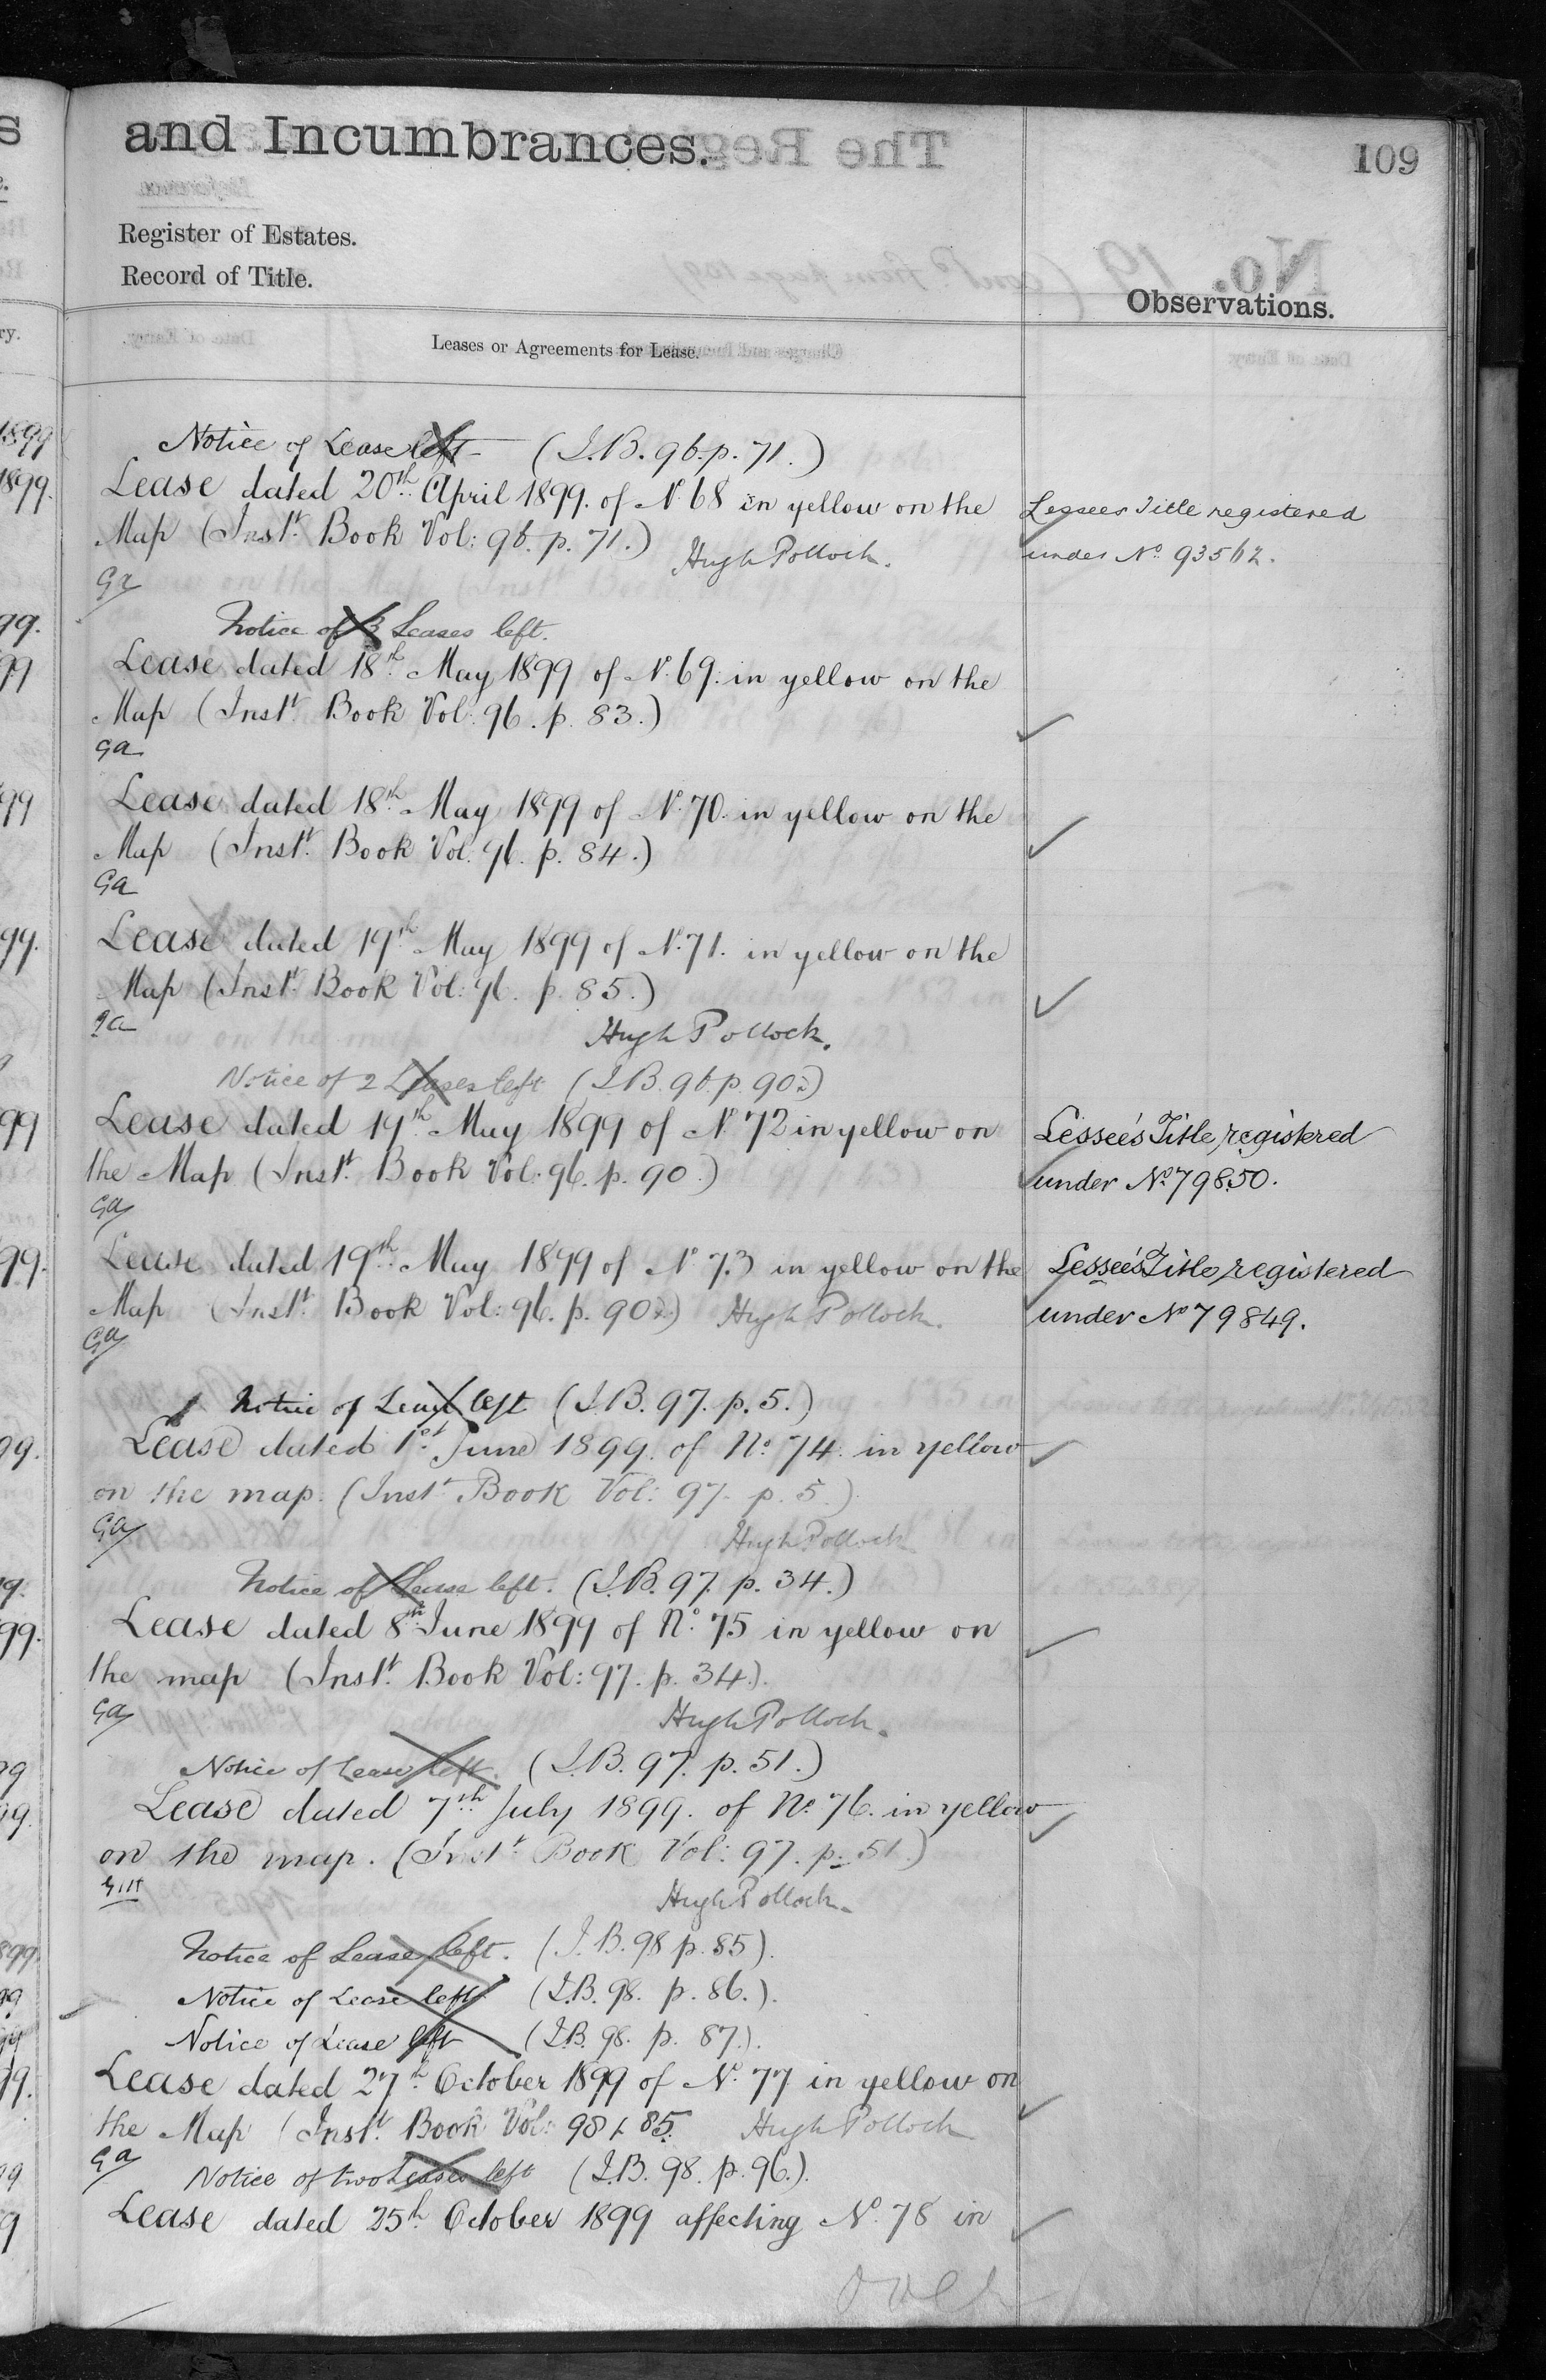 and Incumbrances.
109
Register of Estates.
Record of Title.
Observations.
Leases or Agreements for Lease.
Notice of Lease left (I.B. 96. p. 71.)
Lease dated 20th April 1899. of No. 68 in yellow on the
Map (Instt. Book Vol: 96. p. 71.) Hugh Pollock.
Lessees Title registered
under No. 93562.
Ga
Notice of 3 Leases left.
Lease dated 18th May 1899 of No. 69. in yellow on the
Map (Instt. Book Vol. 96. p. 83.)
Ga
Lease dated 18th May 1899 of No. 70. in yellow on the
Map (Instt. Book Vol. 96. p. 84.)
Ga
Lease dated 19th May 1899 of No. 71. in yellow on the
Map (Instt. Book Vol: 96. p. 85.)
Ga
Hugh Pollock.
Notice of 2 Leases left (I.B. 96. p. 90.)
Lease dated 19th May 1899 of No. 72 in yellow on
the Map (Instt. Book Vol. 96. p. 90.)
Lessee's Title registered
under No. 79850.
Ga
Lease dated 19th May 1899 of No. 73 in yellow on the
Map (Instt. Book Vol: 96. p. 90) Hugh Pollock.
Lessee's Title registered
under No 79849.
Ga
Notice of Lease left (I.B. 97. p. 5.)
Lease dated 1st June 1899. of No. 74. in yellow
on the map. (Instt. Book Vol: 97. p. 5.)
Ga
Hugh Pollock
Notice of Lease left. (I.B. 97. p. 34.)
Lease dated 8th June 1899 of No. 75 in yellow on
the map (Instt. Book Vol: 97. p. 34.)
Ga
Hugh Pollock.
Notice of Lease left. (I.B. 97. p. 51.)
Lease dated 7th July 1899. of No. 76. in yellow
on the map. (Instt. Book Vol: 97. p. 51.)
Hugh Pollock.
Notice of Lease left. (I.B. 98 p. 85).
Notice of Lease left (I.B. 98. p. 86.).
Notice of Lease left (I.B. 98. p. 87.).
Lease dated 27th October 1899 of No. 77 in yellow on
the Map (Instt. Book Vol: 98 p. 85. Hugh Pollock
Ga
Notice of two Leases left (I.B. 98. p. 96.).
Lease dated 25th October 1899 affecting No. 78 in
over